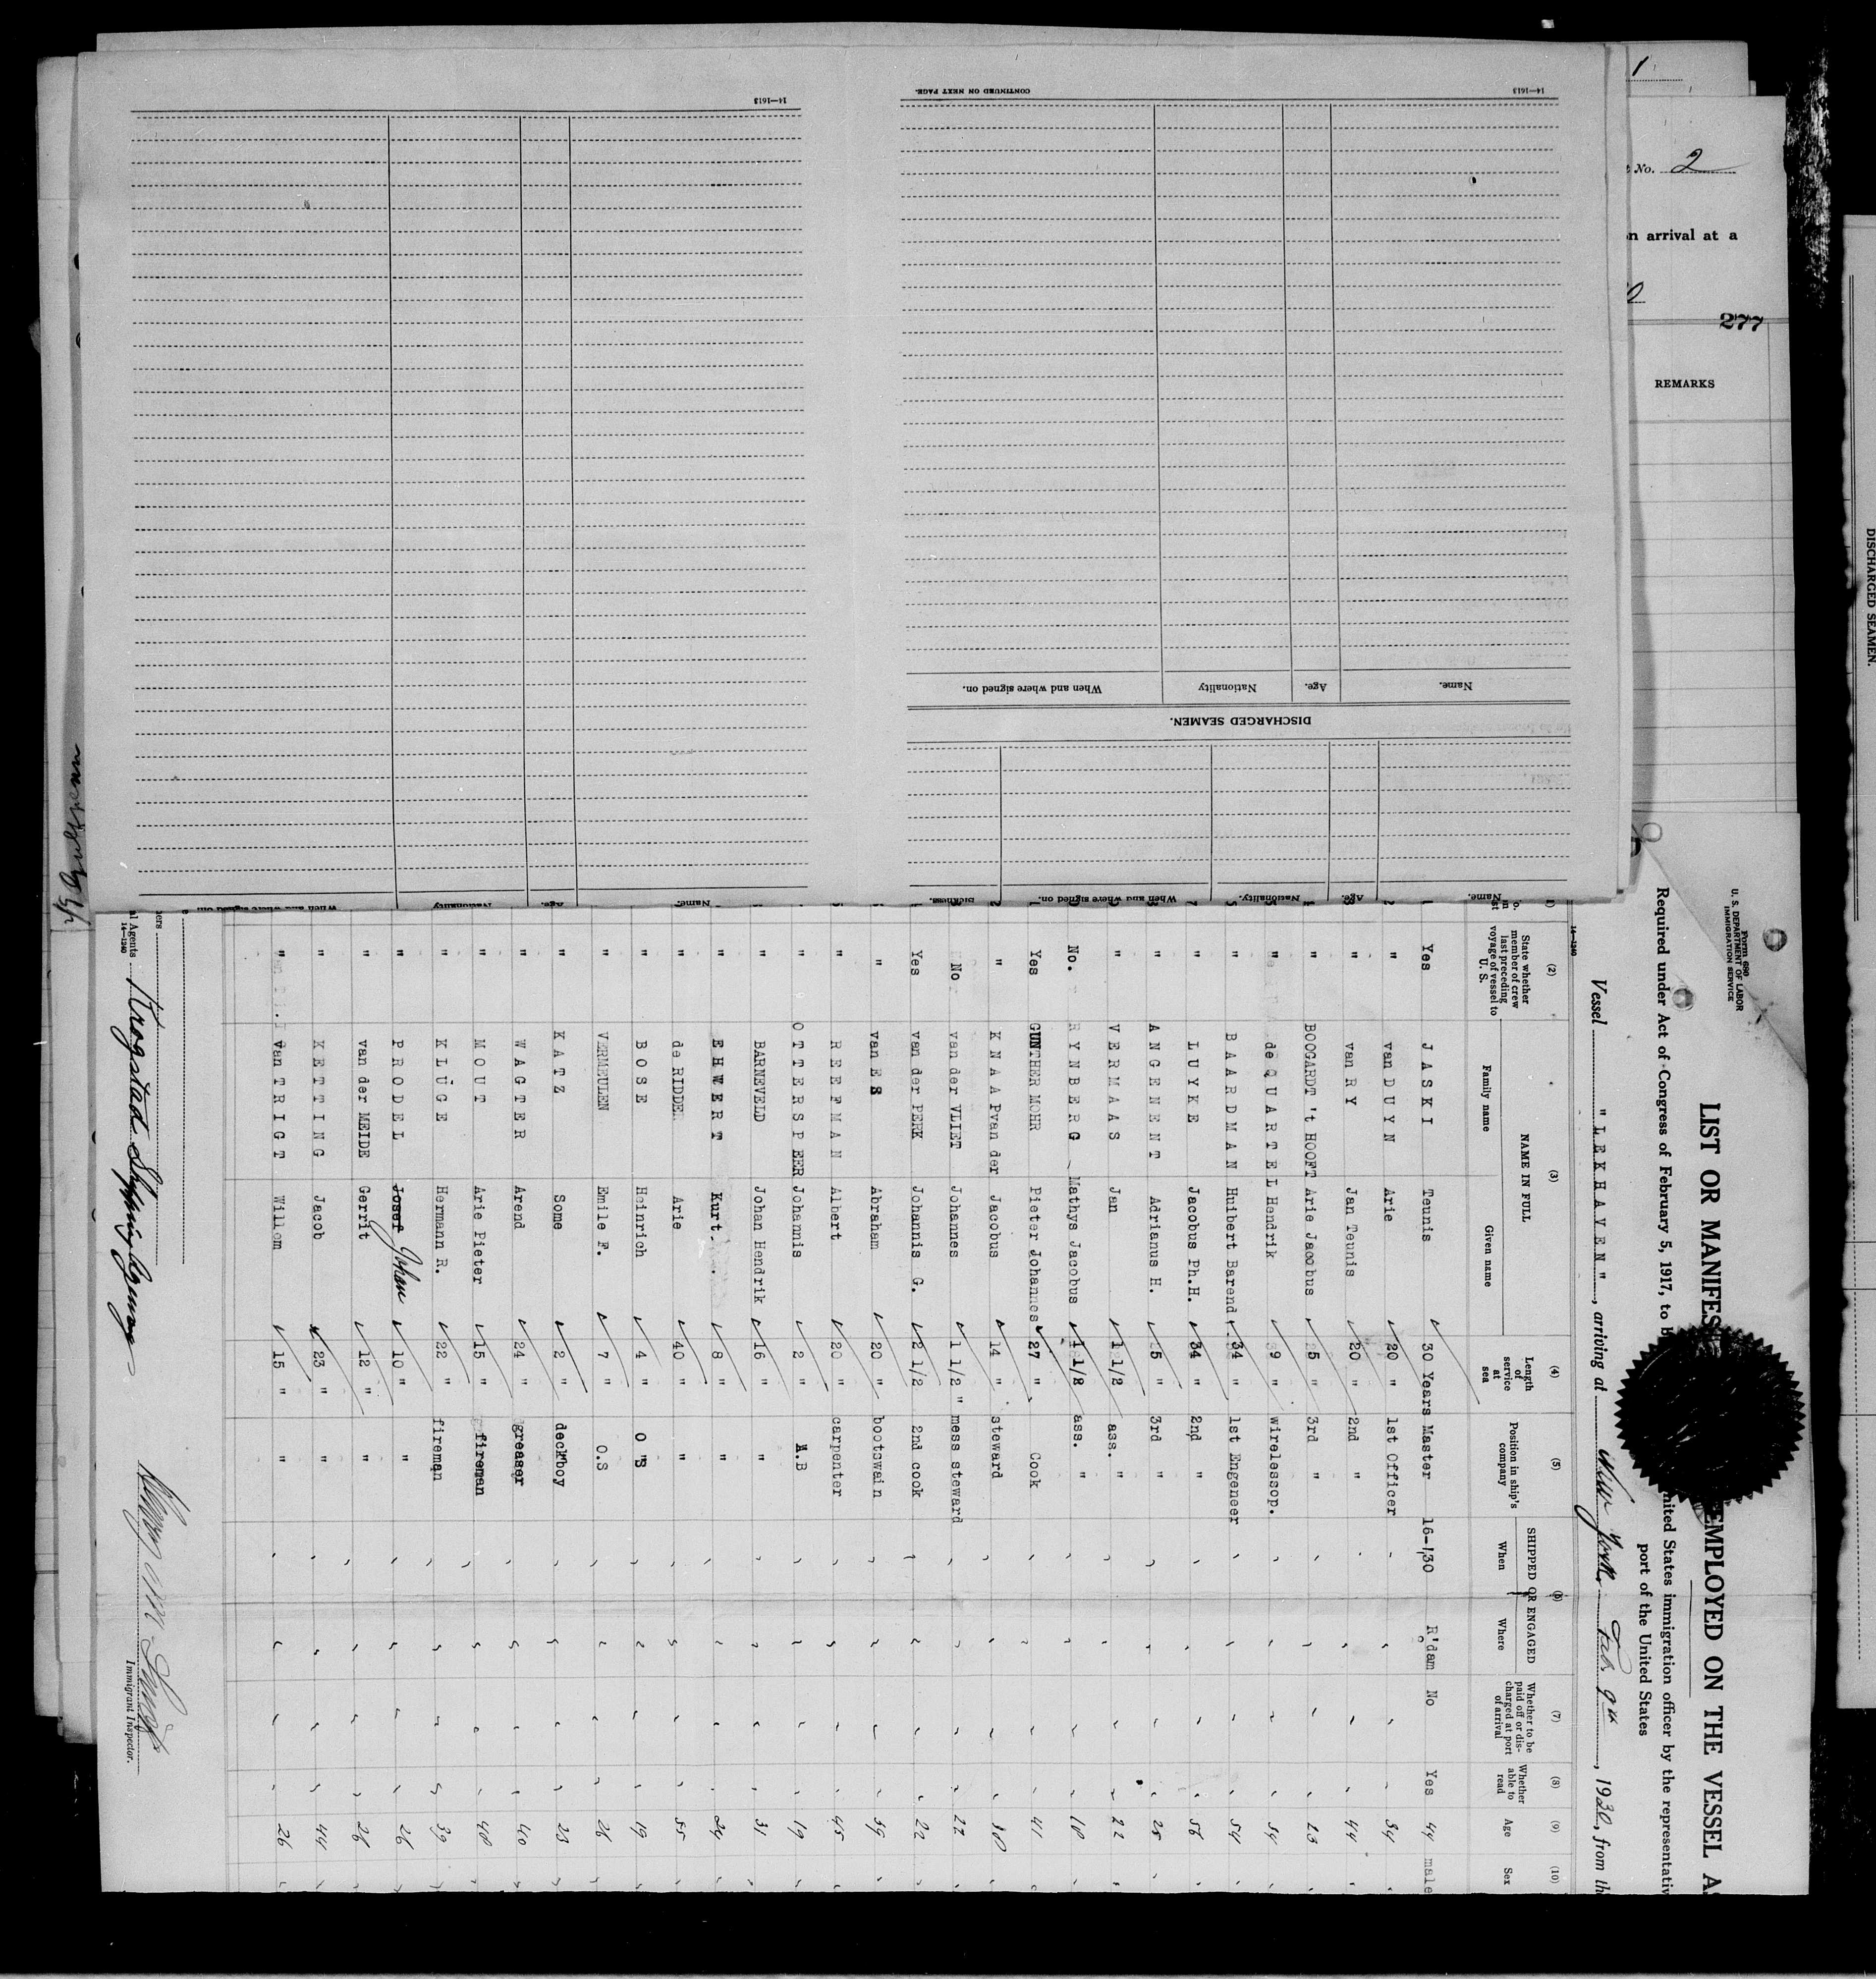 1
No. 2
n arrival at a
277
REMARKS
DISCHARGED SEAMEN.
14—1613
CONTINUED ON NEXT PAGE.
14—1613
Name.
Age.
Nationality
When and where signed on.
DISCHARGED SEAMEN.
Name.
Age.
Nationality.
When and where signed on.
Sickness.
Name.
Age.
Nationality
When and where signed on
Form 680
U. S. DEPARTMENT OF LABOR
IMMIGRATION SERVICE
LIST OR MANIFES EMPLOYED ON THE VESSEL AS
Required under Act of Congress of February 5, 1917, to b nited States immigration officer by the representativ
port of the United States
Vessel "LEKHAVEN", arriving at New York Feb 9th, 1930, from th
14—1240
(2) (3) (4) (5) (6) (7) (8) (9) (10)
State whether member of crew last preceding voyage of vessel to U. S.
NAME IN FULL
Family name
Given name
Length of service at sea
Position in ship's company
SHIPPED OR ENGAGED
When
Where
Whether to be paid off or discharged at port of arrival
Whether able to read
Age
Sex
Yes JASKI Teunis 30 Years Master 16-1,30 R'dam No Yes 44 male
" van DUYN Arie 20 " 1st Officer 34
" van RY Jan Teunis 20 " 2nd " 44
" BOOGARDT 't HOOFT Arie Jacobus 5 " 3rd " 23
" de QUARTEL Hendrik 9 " wirelessop. 34
" BAARDMAN Huibert Barend 34 " 1st Engeneer 54
" LUYKE Jacobus Ph.H. 34 " 2nd " 56
" ANGENENT Adrianus H. 5 " 3rd " 25
" VERMAAS Jan 1 1/2 ass. " 22
No. RYNBERG Mathys Jacobus 1 1/2 ass. " 18
Yes GUNTHER MOHR Pieter Johannes 27 " Cook 41
" KNAAP van der Jacobus 14 " steward 30
No van der VLIET Johannes 1 1/2 " mess steward 22
Yes van der PERK Johannis G. 2 1/2 2nd cook 22
" van ES Abraham 20 " bootswain 39
" REEFMAN Albert 20 " carpenter 45
" OTTERSPEER Johannis 2 " A.B 19
" BARNEVELD Johan Hendrik 16 " " 31
" EHWERT Kurt. 8 " " 24
" de RIDDER Arie 40 " " 55
" BOSE Heinrich 4 " O S 19
" VERMEULEN Emile F. 7 " O.S 26
" KATZ Some 2 " deckboy 23
" WAGTER Arend 24 " greaser 40
" MOUT Arie Pieter 15 " fireman 40
" KLÜGE Hermann R. 22 " fireman 39
" PRODEL Josef Johan 10 " " 26
" van der MEIDE Gerrit 12 " " 26
" KETTING Jacob 23 " " 44
" van TRIGT Willem 15 " " 26
al Agents Krogstad Shipping Agency
14—1240
Immigrant Inspector.